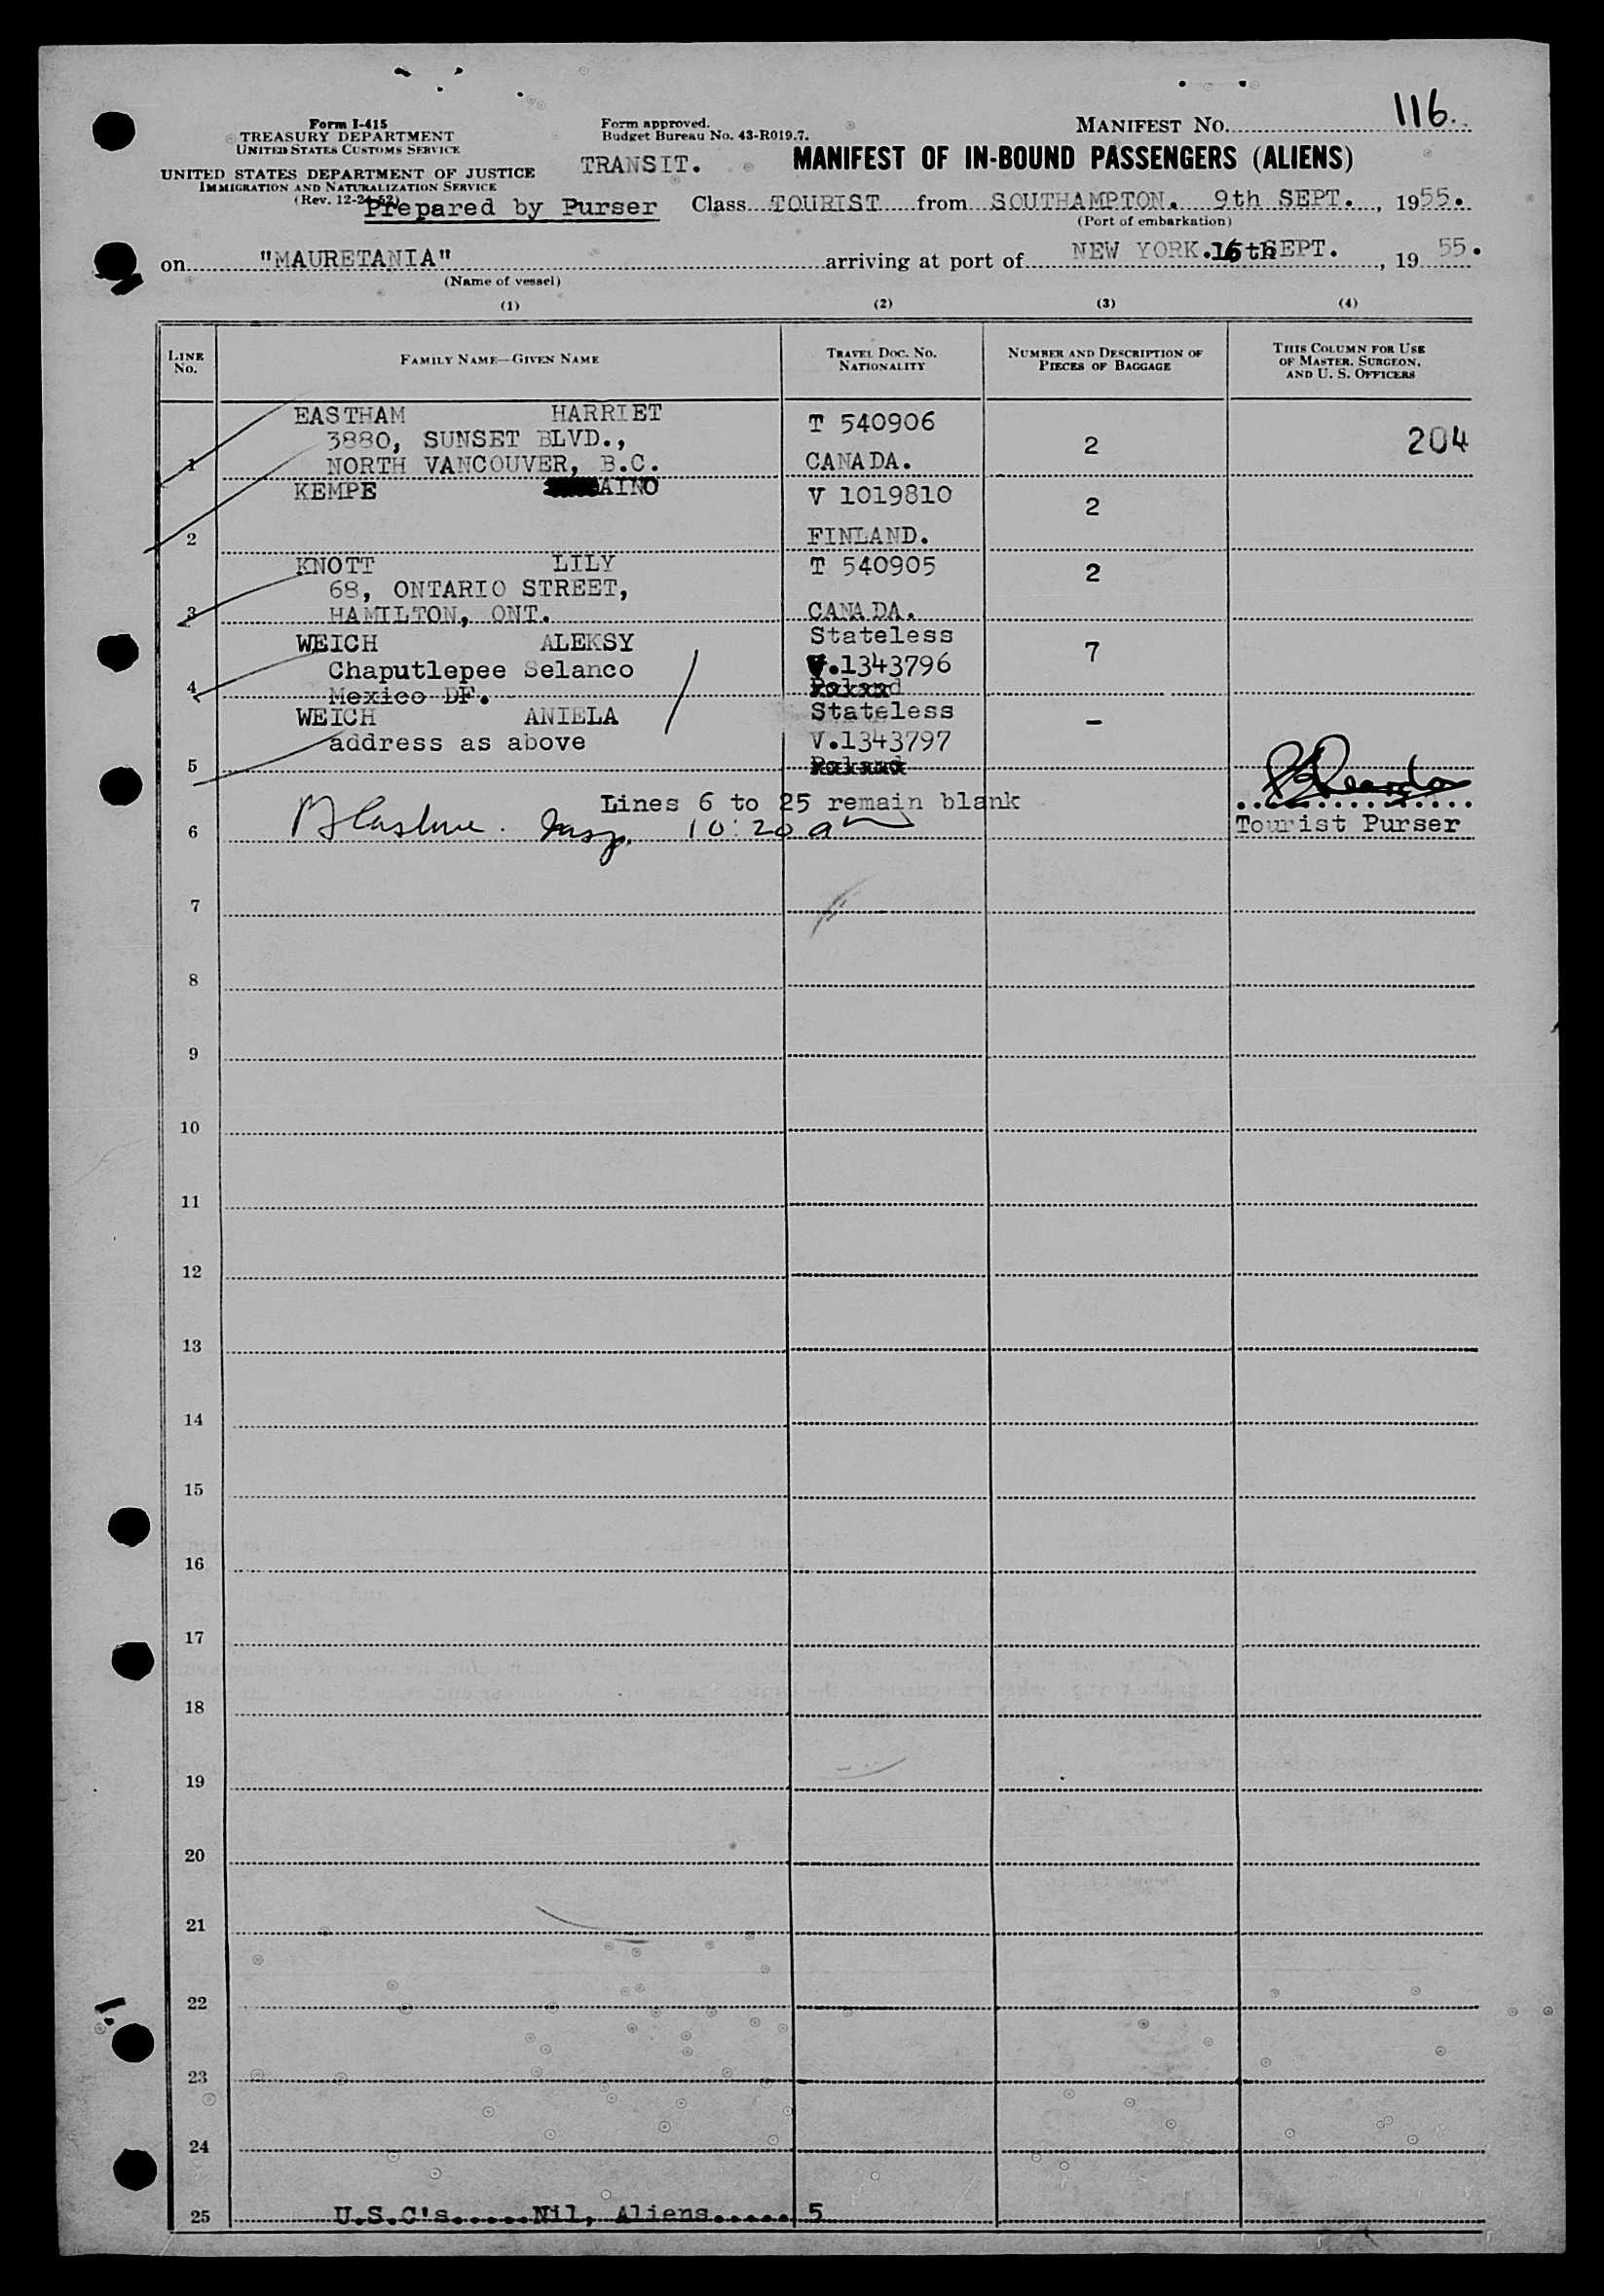 116.
Form I-415
TREASURY DEPARTMENT
UNITED STATES CUSTOMS SERVICE
UNITED STATES DEPARTMENT OF JUSTICE
IMMIGRATION AND NATURALIZATION SERVICE
(Rev. 12-24-52)
Form approved.
Budget Bureau No. 43-R019.7.
MANIFEST NO.
TRANSIT.
MANIFEST OF IN-BOUND PASSENGERS (ALIENS)
Prepared by Purser
Class TOURIST from SOUTHAMPTON. 9th SEPT., 1955.
(Port of embarkation)
on "MAURETANIA" arriving at port of NEW YORK. 16th SEPT., 1955.
(Name of vessel)
(1) (2) (3) (4)
LINE NO.
FAMILY NAME—GIVEN NAME
TRAVEL DOC. NO. NATIONALITY
NUMBER AND DESCRIPTION OF PIECES OF BAGGAGE
THIS COLUMN FOR USE OF MASTER, SURGEON, AND U. S. OFFICERS
EASTHAM HARRIET T 540906
3880, SUNSET BLVD., 2 204
1 NORTH VANCOUVER, B.C. CANADA.
KEMPE AINO V 1019810
2
2 FINLAND.
KNOTT LILY T 540905 2
68, ONTARIO STREET,
3 HAMILTON, ONT. CANADA.
WEICH ALEKSY Stateless 7
Chaputlepee Selanco V.1343796
4 Mexico DF. Poland
WEICH ANIELA Stateless –
address as above V.1343797
5 Poland
Lines 6 to 25 remain blank
6 Insp. 10:20 am
Tourist Purser
7
8
9
10
11
12
13
14
15
16
17
18
19
20
21
22
23
24
25 U.S.C's.....Nil, Aliens..... 5